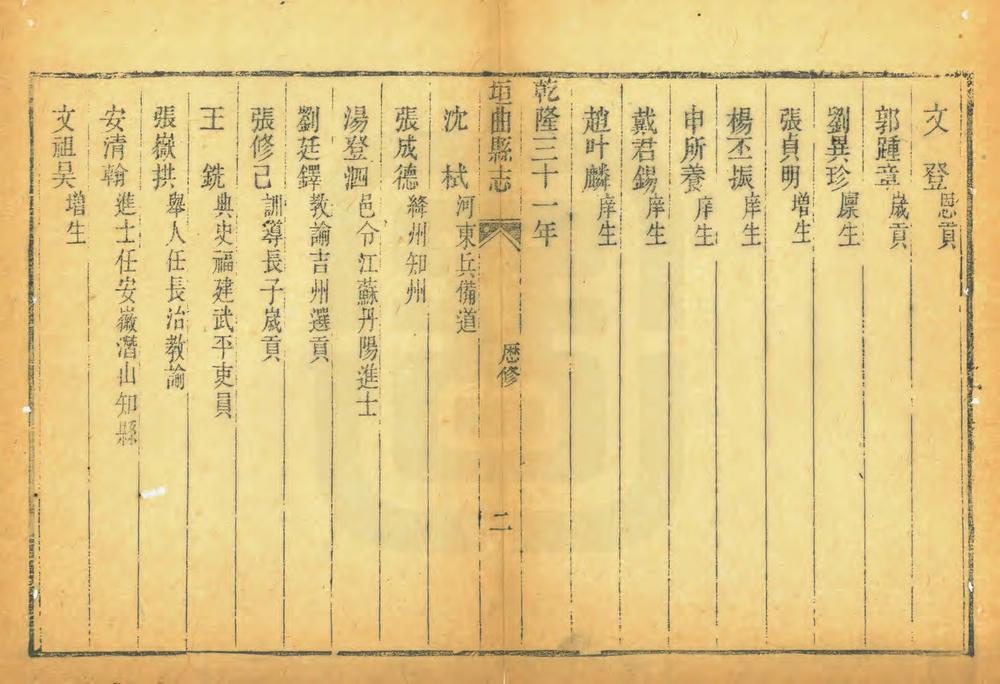 文登恩貢
郭踵章歲貢
劉異珍廪生
張貞明增生
楊丕振庠生
申所養庠生
戴君錫庠生
趙叶麟庠生
乾隆三十一年
垣曲縣志
歷修
二
沈栻河東兵備道
張成德絳州知州
湯登泗邑令江蘇丹陽進士
劉廷鐸教諭吉州選貢
張修己訓導長子歲貢
王銑典史福建武平吏員
張嶽拱舉人任長治教諭
安清翰進士任安徽潛山知縣
文祖吴增生